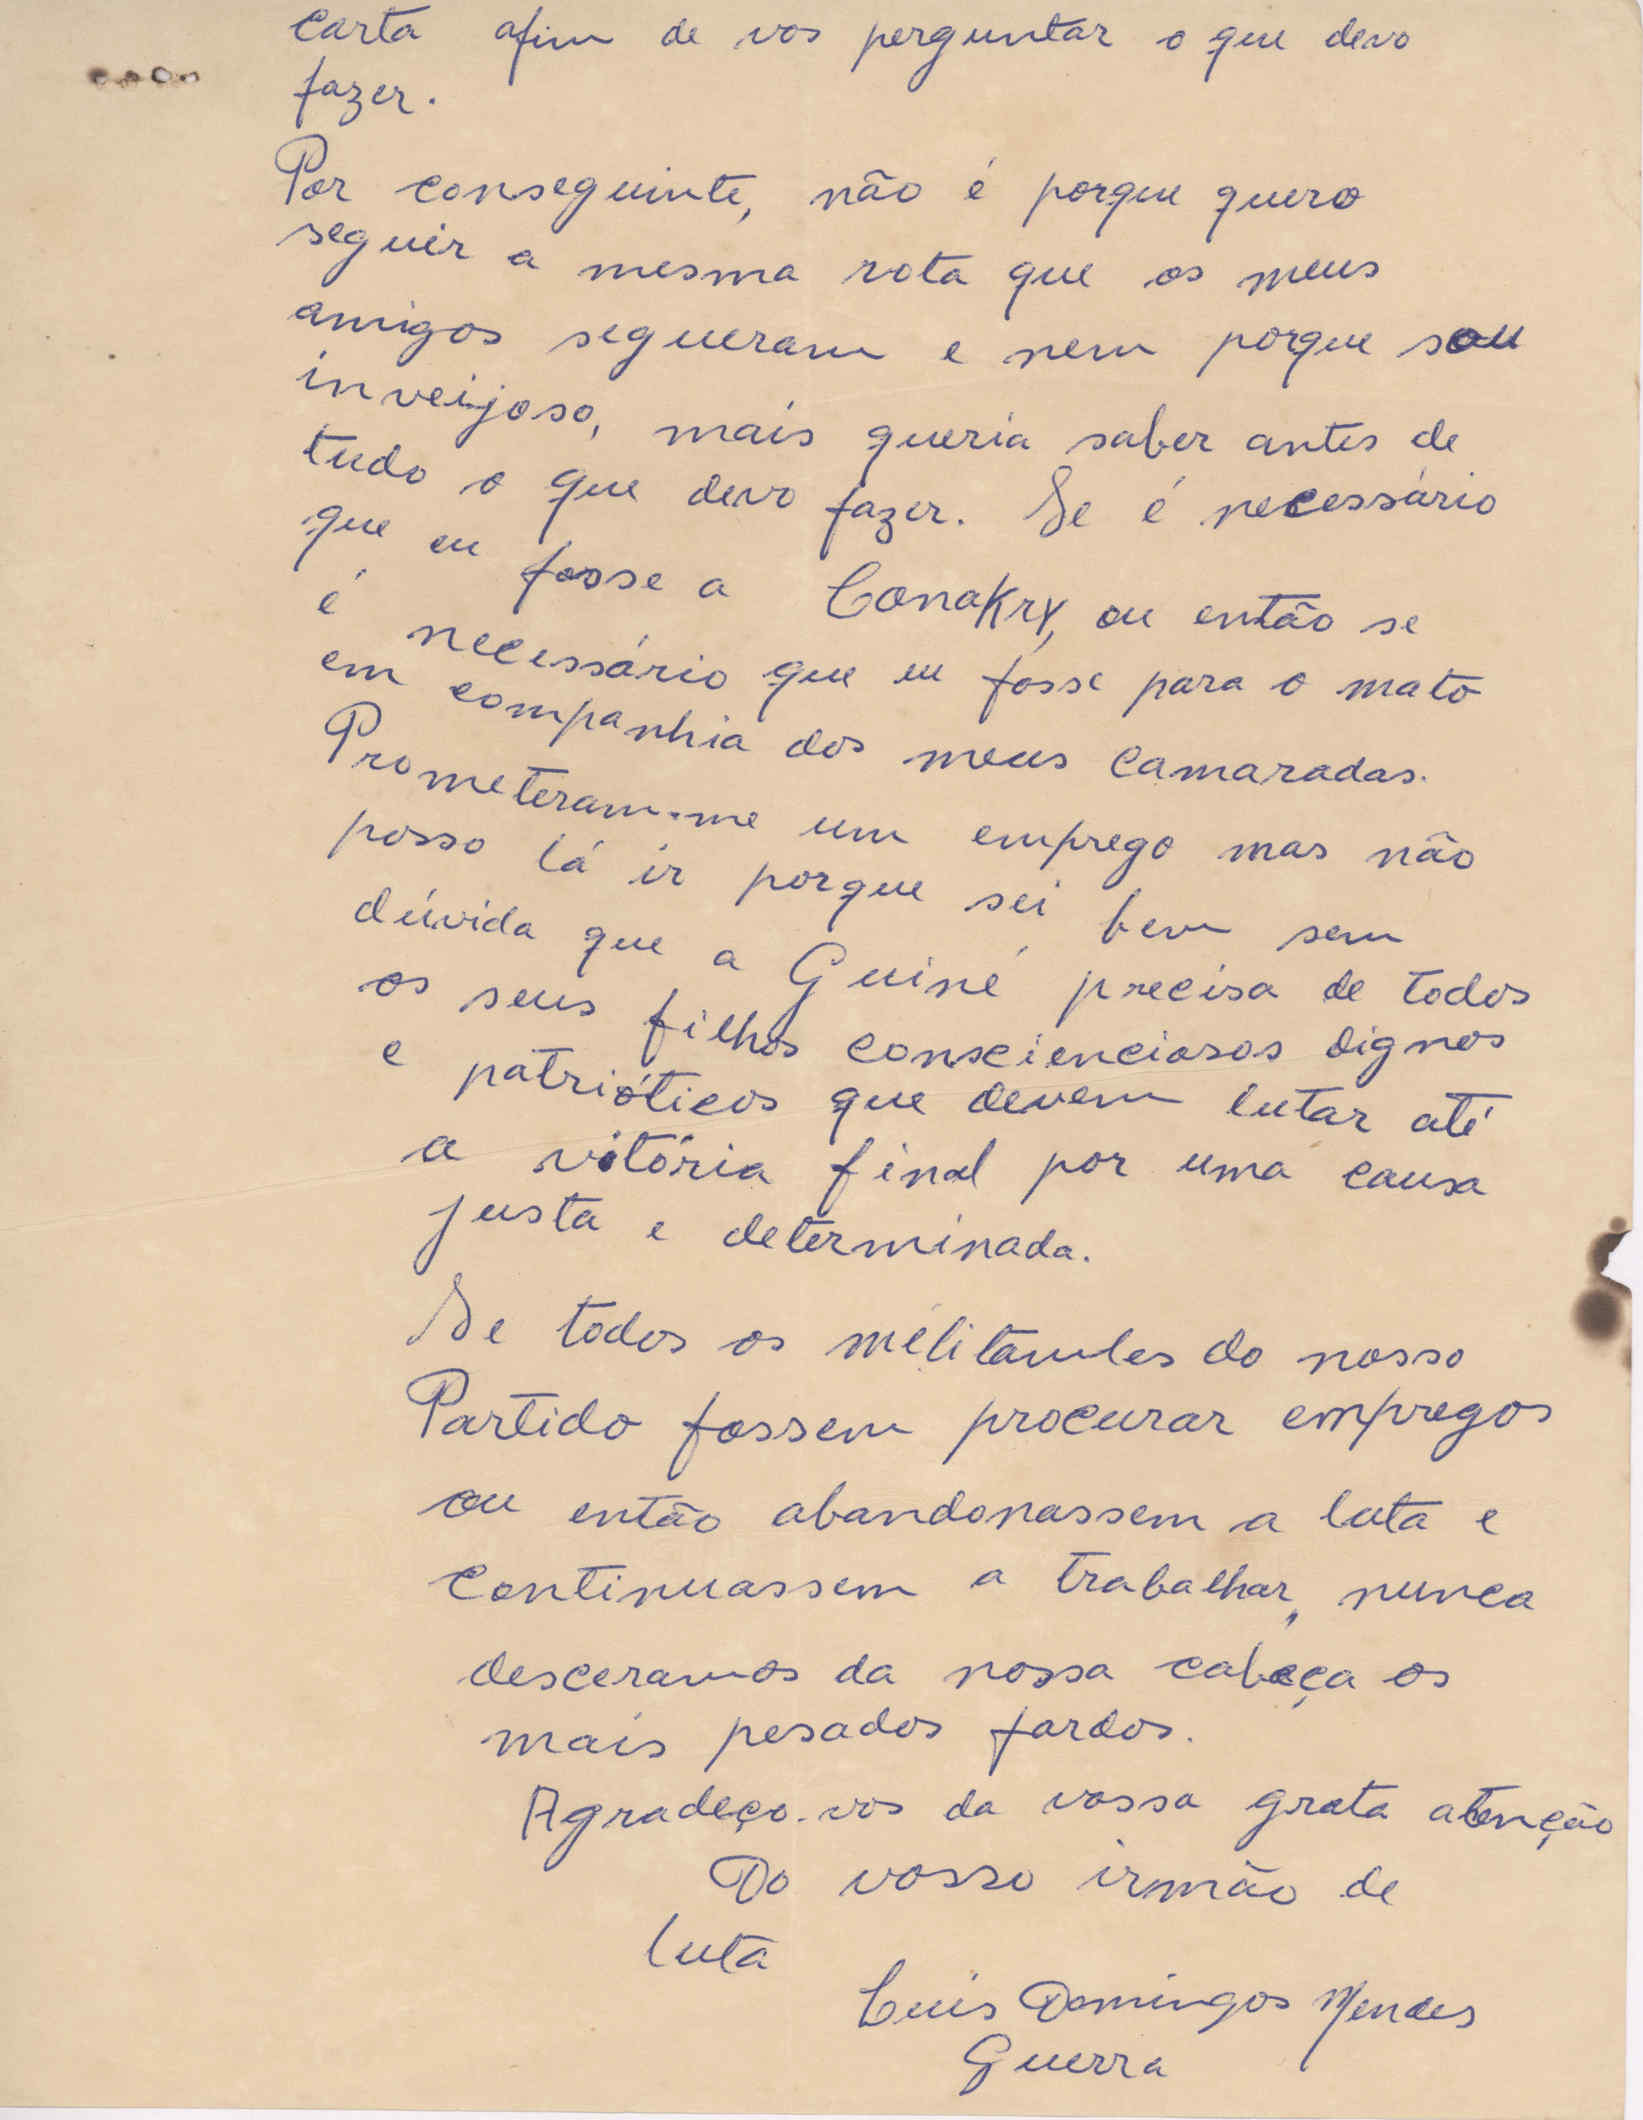 Carta afim de vos perguntar o que devo
fazer.
Por conseguinte, não é porque quero
seguir a mesma rota que os meus
amigos segueram e nem porque sou
inveijoso, mais queria saber antes de
tudo o que devo fazer. Se é necessário
que eu fosse a Conakry, ou então se
é necessário que eu fosse para o mato
em companhia dos meus camaradas.
Prometeram-me um emprego mas não
posso lá ir porque sei bem sem
dúvida que a Guiné precisa de todos
os seus filhos conscienciosos dignos
e patrióticos que devem lutar até
a vitória final por uma causa
justa e determinada.
Se todos os mélitantes do nosso
Partido fossem procurar empregos
ou então abandonassem a luta e
continuassem a trabalhar, nunca
desceramos da nossa cabeça os
mais pesados fardos.
Agradeço-vos da vossa grata atenção
Do vosso irmão de
luta
Luis Domingos Mendes
Guerra